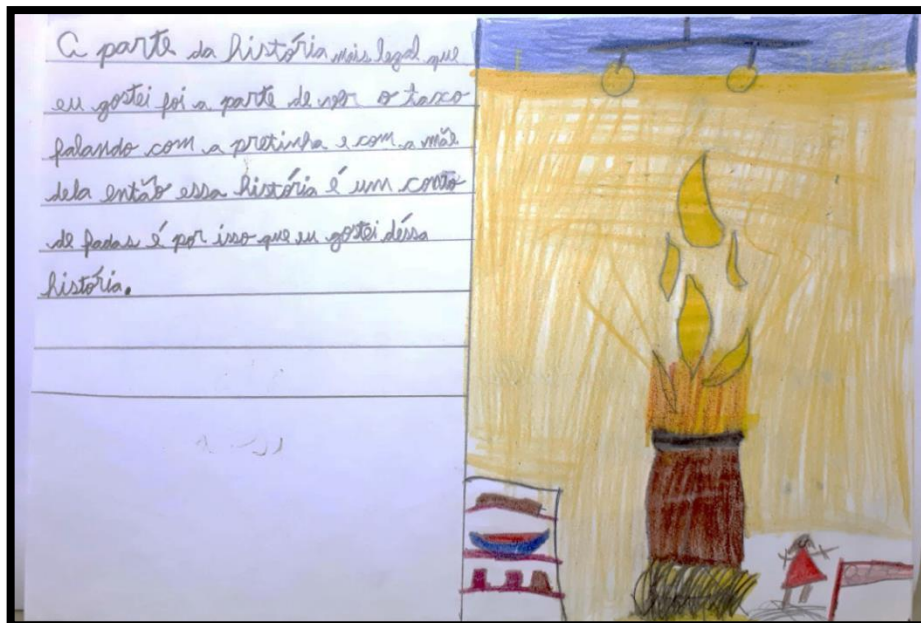 A parte da história mais legal que
eu gostei foi a parte de ver o taxo
falando com a pretinha e com a mãe
dela então essa história é um conto
de fadas é por isso que eu gostei déssa
história.